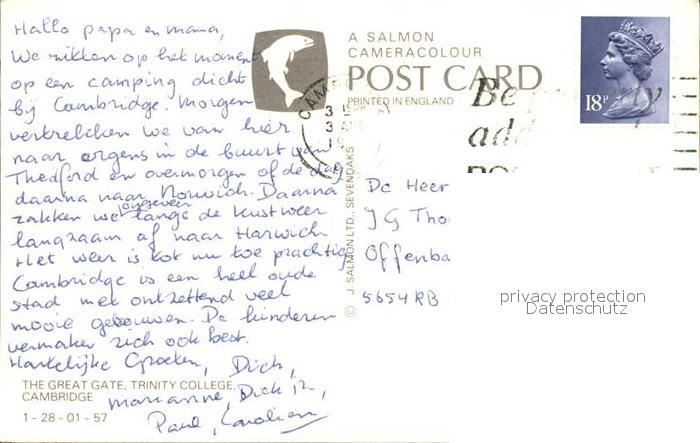 Hallo papa en mama,
We zitten op het moment
op een camping dicht
bij Cambridge. Morgen
vertrekken we van hier
naar ergens in de buurt van
Thedford en overmorgen of de dag
daarna naar Norwich. Daarna
zakken we ongeveer langs de kust weer
langzaam af naar Harwich
Het weer is tot nu toe prachtig
Cambridge is een heel oude
stad met ontzettend veel
mooie gebouwen. De kinderen
vermaken zich ook best.
Hartelijke Groeten, Dick,
Marianne, Dick jr,
Paul, Carolien
THE GREAT GATE, TRINITY COLLEGE,
CAMBRIDGE
1-28-01-57
A SALMON
CAMERACOLOUR
POST CARD
PRINTED IN ENGLAND
© J. SALMON LTD., SEVENOAKS
18P
CAMB
Be
add
De Heer
J G Tho
Offenba
5654 RB
privacy protection
Datenschutz